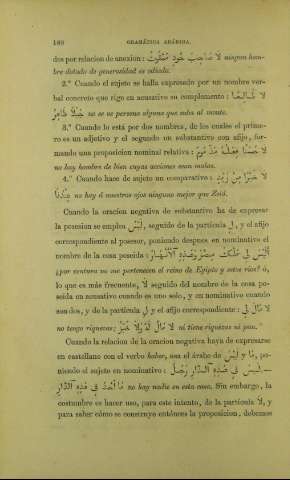 180 GRAMÁTICA ARÁBIGA.
dos por relacion de anexion: لَا صَاحِبَ جُودٍ مَمْقُوتٌ ningun hom-
bre dotado de generosidad es odiado.
2.° Cuando el sujeto se halla expresado por un nombre ver-
bal concreto que rige en acusativo su complemento: لَا طَالِعًا
جَبَلًا ظَاهِرٌ no se ve persona alguna que suba al monte.
3.° Cuando lo está por dos nombres, de los cuales el prime-
ro es un adjetivo y el segundo un substantivo con afijo, for-
mando una proposicion nominal relativa: لَا حَسَنًا فِعْلُهُ مَذْمُومٌ
no hay hombre de bien cuyas acciones sean malas.
4.° Cuando hace de sujeto un comparativo: لَا خَيْرًا مِنْ زَيْدٍ
عِنْدَنَا no hay á nuestros ojos ninguno mejor que Zeid.
Cuando la oracion negativa de substantivo ha de expresar
la posesion se emplea لَيْسَ, seguido de la partícula لِ, y el afijo
correspondiente al posesor, poniendo despues en nominativo el
nombre de la cosa poseida: أَلَيْسَ لِي مُلْكُ مِصْرَ وَهَذِهِ الْأَنْهَارُ
¿por ventura no me pertenecen el reino de Egipto y estos rios? ó,
lo que es más frecuente, لَا seguido del nombre de la cosa po-
seida en acusativo cuando es uno solo, y en nominativo cuando
son dos, y de la partícula لِ y el afijo correspondiente: لَا مَالَ لِي
no tengo riquezas; لَا مَالٌ لَهُ وَلَا خُبْزٌ ni tiene riquezas ni pan.
Cuando la relacion de la oracion negativa haya de expresarse
en castellano con el verbo haber, usa el árabe de لَيْسَ y مَا, po-
niendo el sujeto en nominativo: لَيْسَ فِي هَذِهِ الدَّارِ رَجُلٌ —
مَا أَحَدٌ فِي هَذِهِ الدَّارِ no hay nadie en esta casa. Sin embargo, la
costumbre es hacer uso, para este intento, de la partícula لَا, y
para saber cómo se construye entónces la proposicion, debemos